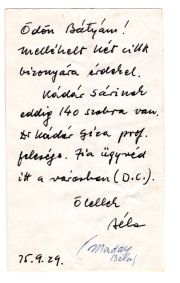 Ödön Bátyám!
Mellékelt két cikk
bizonyára érdekel.
Kádár Sárinek
eddig 140 szobra van.
Dr Kádár Géza prof.
felesége. Fia ügyvéd
itt a városban (D.C.).
Ölellek
Béla
(Maday
Béla)
75.9.29.